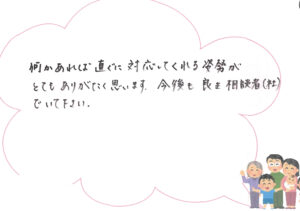 何かあれば直ぐに対応してくれる姿勢が
とてもありがたく思います。今後も良き相談者(社)
でいて下さい。